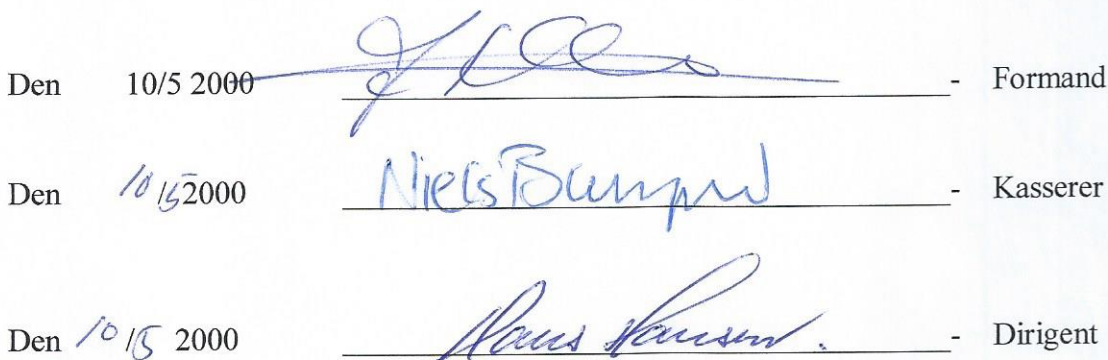 Den 10/5 2000 - Formand
Den 10/5 2000 Niels - Kasserer
Den 10/5 2000 Hans Hansen. - Dirigent